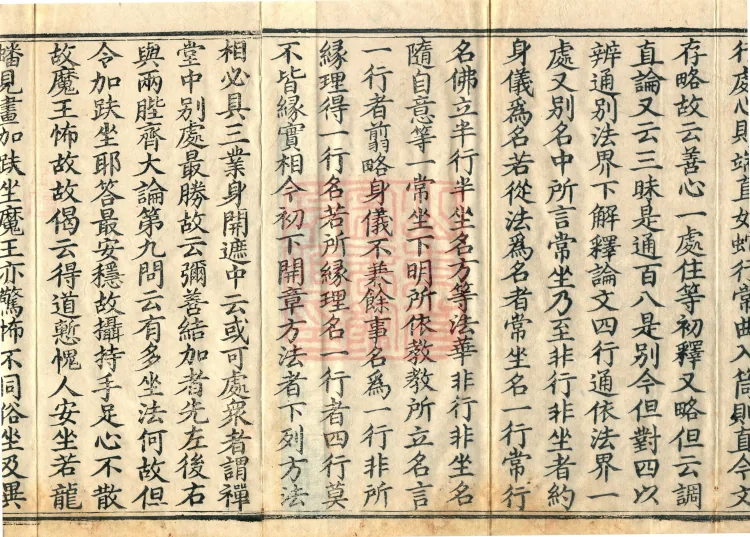 行處心則端直如蛇行常曲入筒則直今文
存略故云善心一處住等初釋又略但云調
直論又云三昧是通百八是別今但對四以
辨通別法界下解釋論文四行通依法界一
處又別名中所言常坐乃至非行非坐者約
身儀為名若從法為名者常坐名一行常行
名佛立半行半坐名方等法華非行非坐名
隨自意等一常坐下明所依教教所立名言
一行者翦略身儀不兼餘事名為一行非所
緣理得一行名若所緣理名一行者四行莫
不皆緣實相今初下開章方法者下列方法
相必具三業身開遮中云或可處衆者謂禪
堂中別處最勝故云彌善結加者先左後右
與兩髀齊大論第九問云有多坐法何故但
令加趺坐耶答最安穩故攝持手足心不散
故魔王怖故故偈云得道慙愧人安坐若龍
蟠見畫加趺坐魔王亦驚怖不同俗坐及異